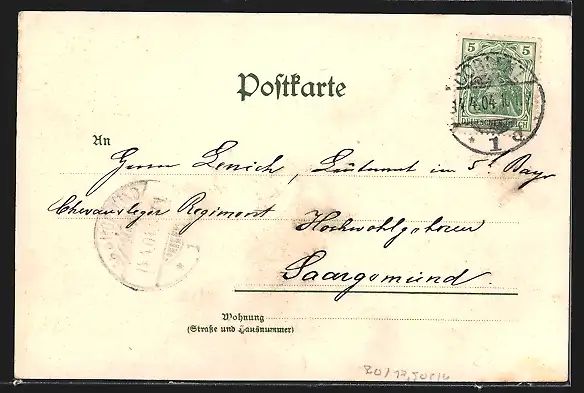 Postkarte
5 5
COBLENZ
4.04
1 d
An
Herrn Lenich, Leutnant im 5t Bayr
Chevauxleger Regiment
Hochwohlgeboren
Saargemünd.
Wohnung
(Straße und Hausnummer)